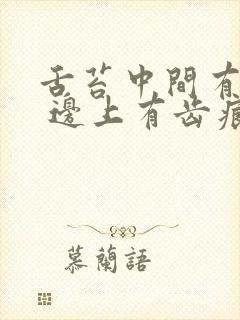 舌苔中間有
邊上有齿痕
慕蘭語